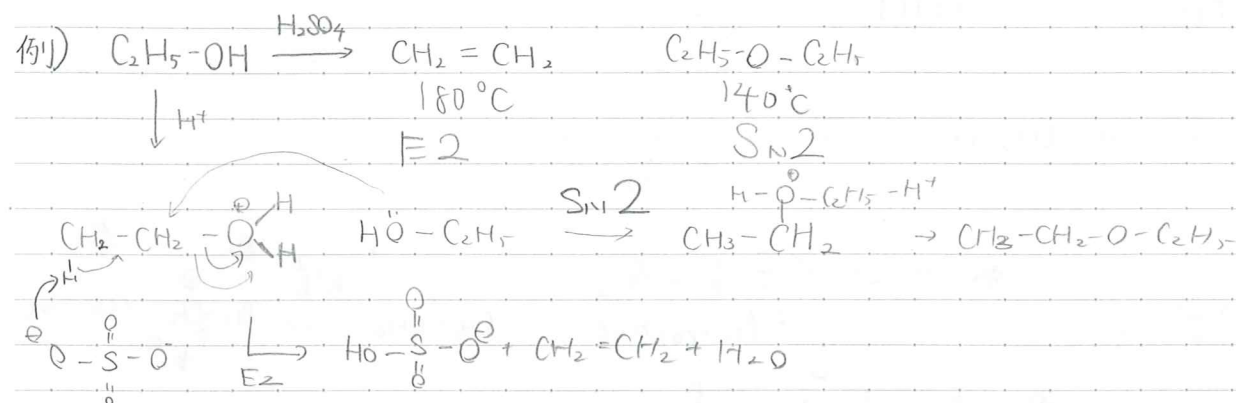 例) C₂H₅-OH —H₂SO₄→ CH₂ = CH₂ C₂H₅-O-C₂H₅
↓ H⁺ 180℃ 140℃
E2 SN2
CH₂-CH₂-O⊕ H H HÖ-C₂H₅ —SN2→ CH₃-CH₂ H-O⊕-C₂H₅ -H⁺ → CH₃-CH₂-O-C₂H₅
H
⊖O-S-O⁻ O O E2 → HO-S-O⊖ O O + CH₂=CH₂ + H₂O